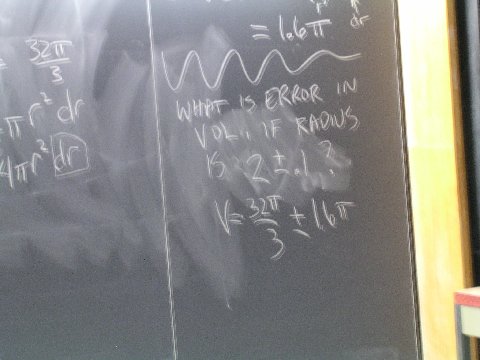 32π
3
π r² dr
4πr² dr
= 1.6π
dr
WHAT IS ERROR IN
VOL., IF RADIUS
IS 2 ± .1 ?
V = 32π/3 ± 1.6π